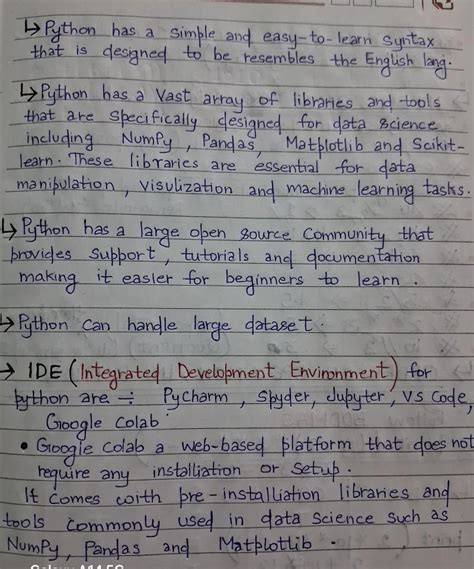 ↳ Python has a simple and easy-to-learn syntax
that is designed to be resembles the English lang.
↳ Python has a vast array of libraries and tools
that are specifically designed for data science
including NumPy, Pandas, Matplotlib and Scikit-
learn. These libraries are essential for data
manibulation, visulization and machine learning tasks.
↳ Python has a large open source Community that
provides support, tutorials and documentation
making it easier for beginners to learn.
↳ Python Can handle large dataset.
→ IDE (Integrated Development Environment) for
python are :- Pycharm, Spyder, Jupyter, VS Code,
Google Colab
• Google Colab a web-based platform that does not
require any installiation or setup.
It Comes with pre-installiation libraries and
tools commonly used in data science such as
NumPy, Pandas and Matplotlib.